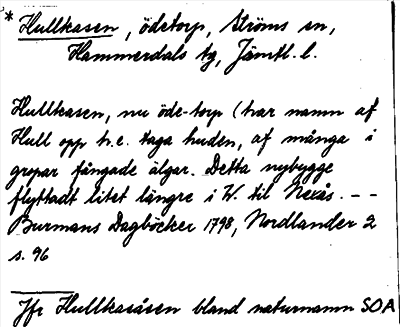 * Hullkasen, ödetorp, Ströms sn,
Hammerdals tg, Jämtl. l.
Hullkasen, nu öde-torp (har namn af
Hull opp h.e. taga huden, af många i
gropar fångade älgar. Detta nybygge
flyttadt litet längre i W. til Nexås. --
Burmans Dagböcker 1798, Nordlander 2
s. 96
Jfr Hullkasåsen bland naturnamn SOA